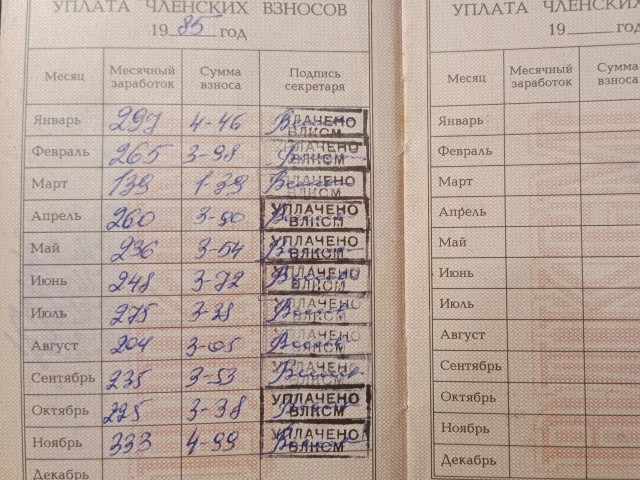 УПЛАТА ЧЛЕНСКИХ ВЗНОСОВ
1985 год
Месяц Месячный заработок Сумма взноса Подпись секретаря
Январь 297 4-46 УПЛАЧЕНО ВЛКСМ
Февраль 265 3-98 УПЛАЧЕНО ВЛКСМ
Март 139 1-39 УПЛАЧЕНО ВЛКСМ
Апрель 260 3-90 УПЛАЧЕНО ВЛКСМ
Май 236 3-54 УПЛАЧЕНО ВЛКСМ
Июнь 248 3-72 УПЛАЧЕНО ВЛКСМ
Июль 275 3-38 УПЛАЧЕНО ВЛКСМ
Август 204 3-05 УПЛАЧЕНО ВЛКСМ
Сентябрь 235 3-53 УПЛАЧЕНО ВЛКСМ
Октябрь 225 3-38 УПЛАЧЕНО ВЛКСМ
Ноябрь 333 4-99 УПЛАЧЕНО ВЛКСМ
Декабрь
УПЛАТА ЧЛЕНСКИХ
19 год
Месяц Месячный заработок Сумма взноса
Январь
Февраль
Март
Апрель
Май
Июнь
Июль
Август
Сентябрь
Октябрь
Ноябрь
Декабрь